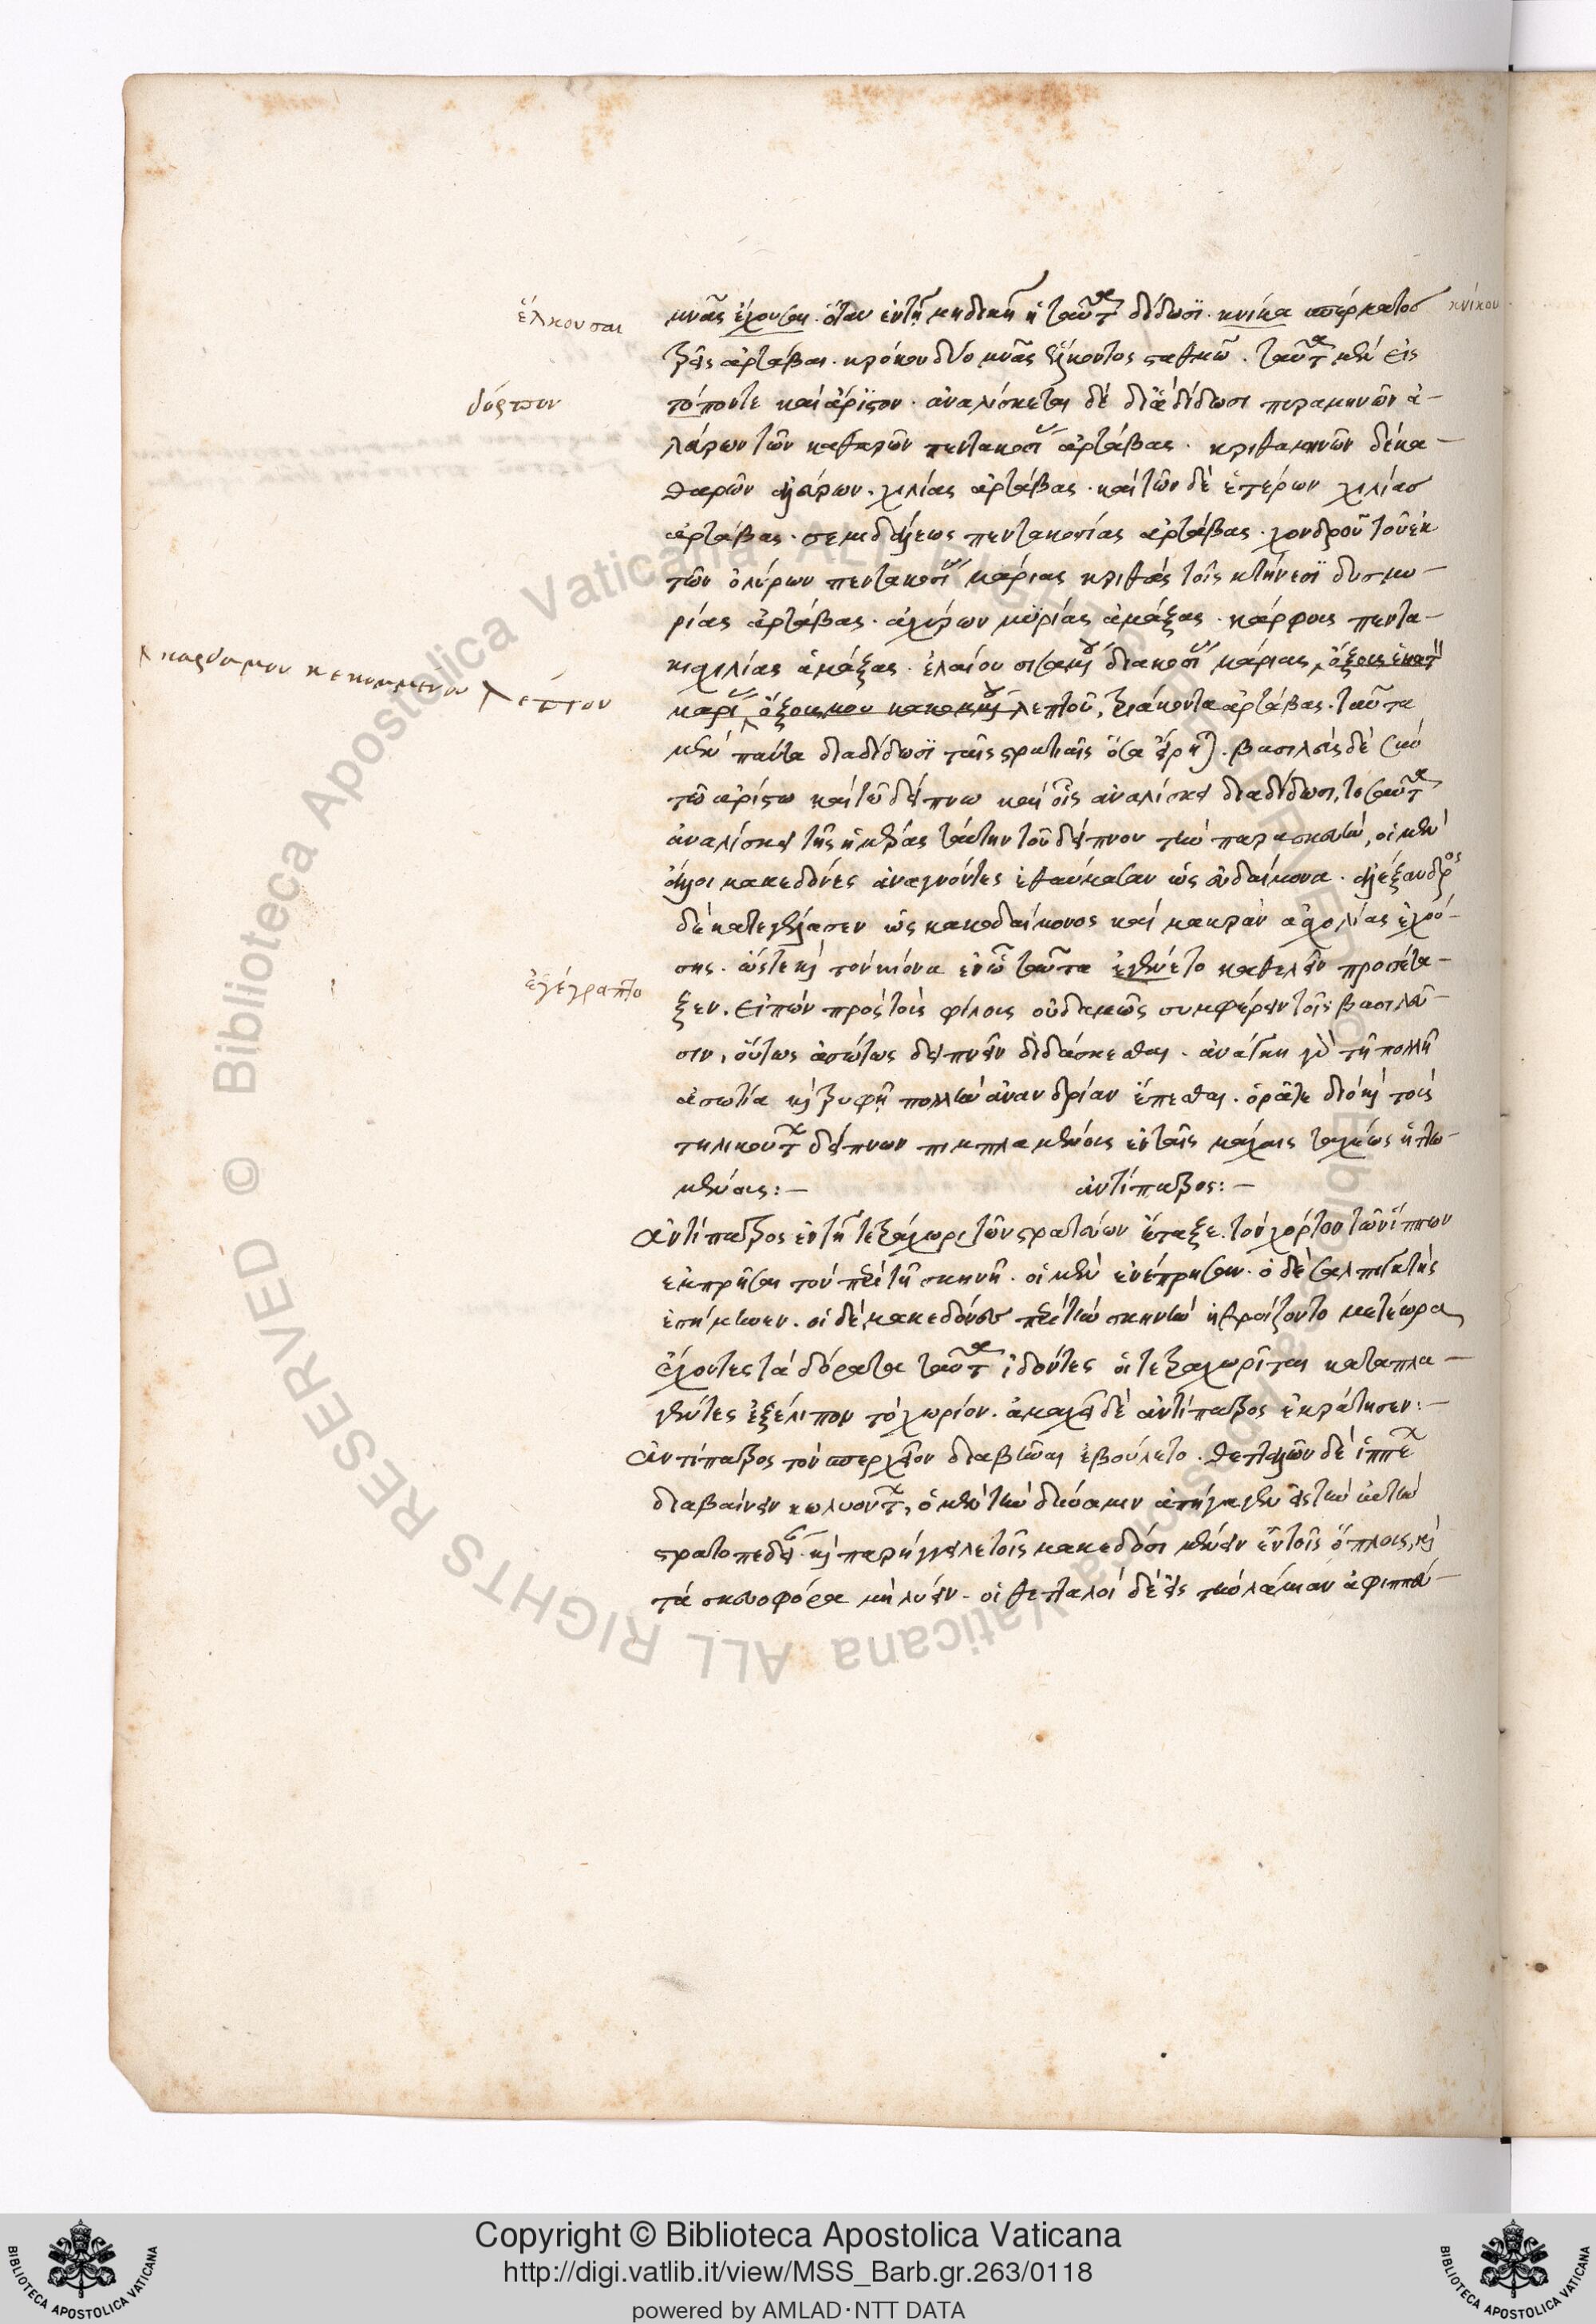 μνᾶς ἔχουσαι. ὅταν ἐν τῇ μηδικῇ ᾖ ταῦτα δίδωσι. κνίκα σπέρματος
κνίκου
ἕλκουσαι
τρεῖς ἀρτάβαι. κρόκου δύο μνᾶς ἕλκοντος σταθμῶ. ταῦτα μὲν εἰς
τόποντε καὶ ἄριστον. ἀναλίσκεται δὲ διαδίδωσι πυραμηνῶν ἀ-
δόρπον
λεύρων τῶν καθαρῶν πεντακοσί ἀρτάβας. κριθαμηνῶν δὲ κα-
θαρῶν ἀλεύρων. χιλίας ἀρτάβας. καὶ τῶν δὲ ἑτέρων χιλίας
ἀρτάβας. σεμιδάλεως πεντακοσίας ἀρτάβας. χονδροῦ τοῦ ἐκ
τῶν ὀλύρων πεντακοσί μάριας κριθὰς τοῖς κτήνεσι δισμυ-
ρίας ἀρτάβας. ἀχύρων μυρίας ἁμάξας. κάρφους πεντα-
κιχιλίας ἁμάξας. ἐλαίου σισαμί διακοσί μάριας, ὄξους ἑκατ
καρδάμου κεκομμένου λεπτον
μαρι ὄξους λεπτοῦ, τριάκοντα ἀρτάβας. ταῦτα
μὲν πάντα διαδίδωσι ταῖς στρατιαῖς ὅσα εἴρηται. βασιλεὺς δὲ σὺν
τῶ ἀρίστω καὶ τῶ δείπνω καὶ οἷς ἀναλίσκει διαδίδωσι, τοσαῦτα
ἀναλίσκει τῆς ἡμέρας ταύτην τοῦ δείπνου τὴν παρασκευὴν, οἱ μὲν
ἄλλοι μακεδόνες ἀναγνόντες ἐθαύμασαν ὡς εὐδαίμονα. ἀλέξανδρος
δὲ κατεγέλασεν ὡς κακοδαίμονος καὶ μακρὰν ἀσχολίας ἐχού-
σης. ὥστε καὶ τὸν κίονα ἐν ὧ ταῦτα ἐγένετο καθελεῖν προσέτα-
ἐγέγραπτο
ξεν. εἰπὼν πρὸς τοὺς φίλους οὐδαμῶς συμφέρειν τοῖς βασιλεῦ-
σιν, οὕτως ἀσώτως δειπνεῖν διδάσκεσθαι. ἀνάγκη γὰρ τῇ πολλῇ
ἀσωτία καὶ τρυφῇ πολλὴν ἀνανδρίαν ἕπεσθαι. ὁρᾶτε διὸ καὶ τοὺς
τηλικούτων δείπνων πιμπλαμένους ἐν ταῖς μάχαις ταχέως ἡττω-
μένους:— ἀντίπατρος:—
Ἀντίπατρος ἐν τῇ τετραχωριτῶν στρατεύων ἔταξε. τὸν χόρτον τῶν ἵππων
ἐμπρῆσαι τὸν περὶ τῇ σκηνῇ. οἱ μὲν ἐνέπρησαν. ὁ δὲ σαλπιγκτὴς
ἐσήμηνεν. οἱ δὲ μακεδόνες περὶ τὴν σκηνὴν ἠθροίζοντο μετέωρα
ἔχοντες τὰ δόρατα ταῦτα ἰδόντες οἱ τετραχωρῖται καταπλα-
γέντες ἐξέλιπον τὸ χωρίον. ἀμαχεὶ δὲ ἀντίπατρος ἐκράτησεν:—
Ἀντίπατρος τὸν σπερχειὸν διαβῆναι ἐβούλετο. θετταλῶν δὲ ἱππέων
διαβαίνειν κωλυόντων, ὁ μὲν τὴν δύναμιν ἀπήγαγεν εἰς τὴν αὐτὴν
στρατοπεδείαν καὶ παρήγγειλε τοῖς μακεδόσι μένειν ἐν τοῖς ὅπλοις, καὶ
τὰ σκευοφόρα μὴ λύειν. οἱ θετταλοὶ δὲ εἰς τὴν λάμιαν ἀφιππεύ-
Copyright © Biblioteca Apostolica Vaticana
http://digi.vatlib.it/view/MSS_Barb.gr.263/0118
powered by AMLAD·NTT DATA
BIBLIOTECA APOSTOLICA VATICANA
BIBLIOTECA APOSTOLICA VATICANA
© Biblioteca Apostolica Vaticana ALL RIGHTS RESERVED